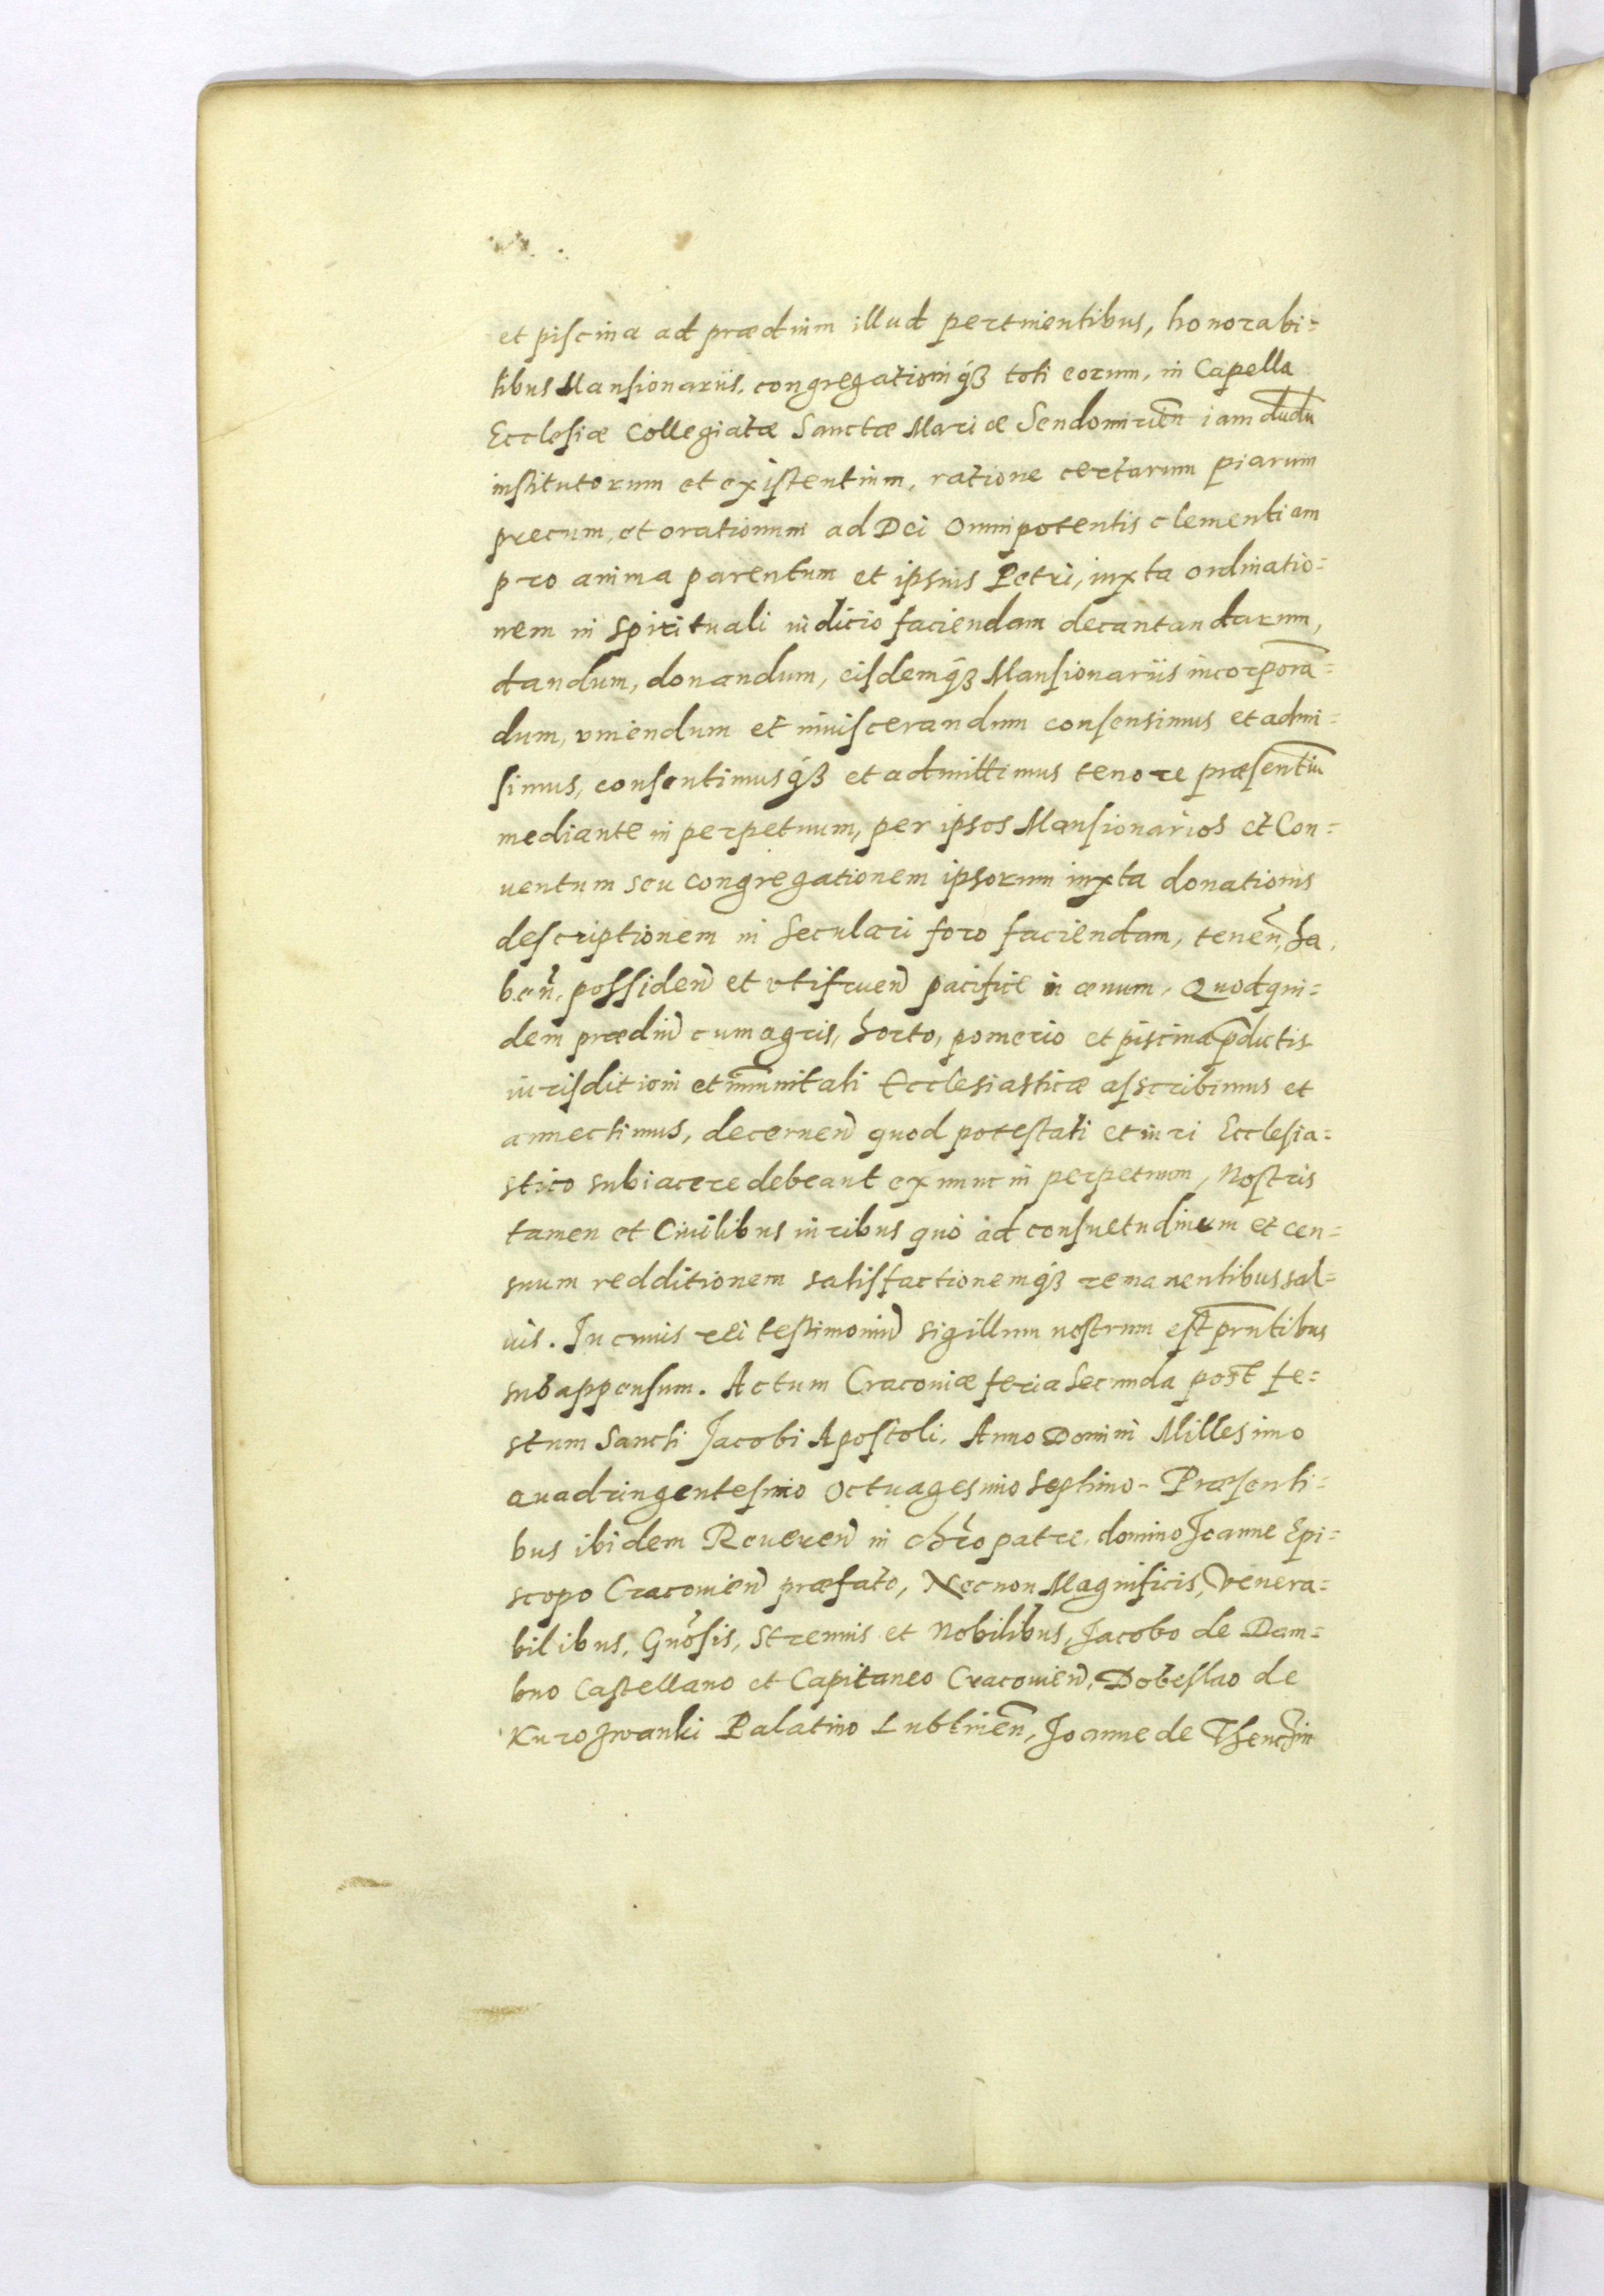 et piscina ad prædium illud pertinentibus, honorabi=
libus Mansionariis, congregationiq́ꝫ toti eorum, in Capella
Ecclesiæ Collegiatæ Sanctæ Mariæ Sendomirien̄ iam dudū
institutorum et existentium, ratione certarum piarum
precum, et orationum ad Dei Omnipotentis clementiam
pro anima parentum et ipsius Petri, iuxta ordinatio=
nem in spirituali iudicio faciendam decantandarum,
dandum, donandum, eisdemq́ꝫ Mansionariis incorporā=
dum, vniendum et inuiscerandum consensimus et admi=
simus, consentimusq́ꝫ et admittimus tenore præsentiū
mediante in perpetuum, per ipsos Mansionarios et Con=
uentum seu congregationem ipsorum iuxta donationis
descriptionem in seculari foro faciendam, tenen̄, ha,
ben̄, possiden̄ et vtifruen̄ pacifice in æuum. Quodqui=
dem prædiū cum agris, horto, pomerio et piscina p̄dictis
iurisditioni et im̄unitati Ecclesiasticæ asscribimus et
annectimus, decernen̄ quod potestati et iuri Ecclesia=
stico subiacere debeant ex nunc in perpetuum, Nostris
tamen et Ciuilibus iuribus quò ad consuetudinem et cen=
suum redditionem satisfactionemq́ꝫ remanentibus sal=
uis. In cuius rei testimoniū sigillum nostrum est prn̄tibus
subappensum. Actum Cracouiæ feria secunda post fe=
stum Sancti Jacobi Apostoli, Anno Domini Millesimo
quadringentesimo Octuagesimo septimo. Præsenti=
bus ibidem Reueren̄ in chr̄o patre, domino Joanne Epi=
scopo Cracouien̄ præfato, Necnon Magnificis, venera=
bilibus, Gn̄osis, Strenuis et Nobilibus, Jacobo de Dam=
bno Castellano et Capitaneo Cracouien̄, Dobeslao de
Kurozwanki Palatino Lublinen̄, Joanne de Thenczin